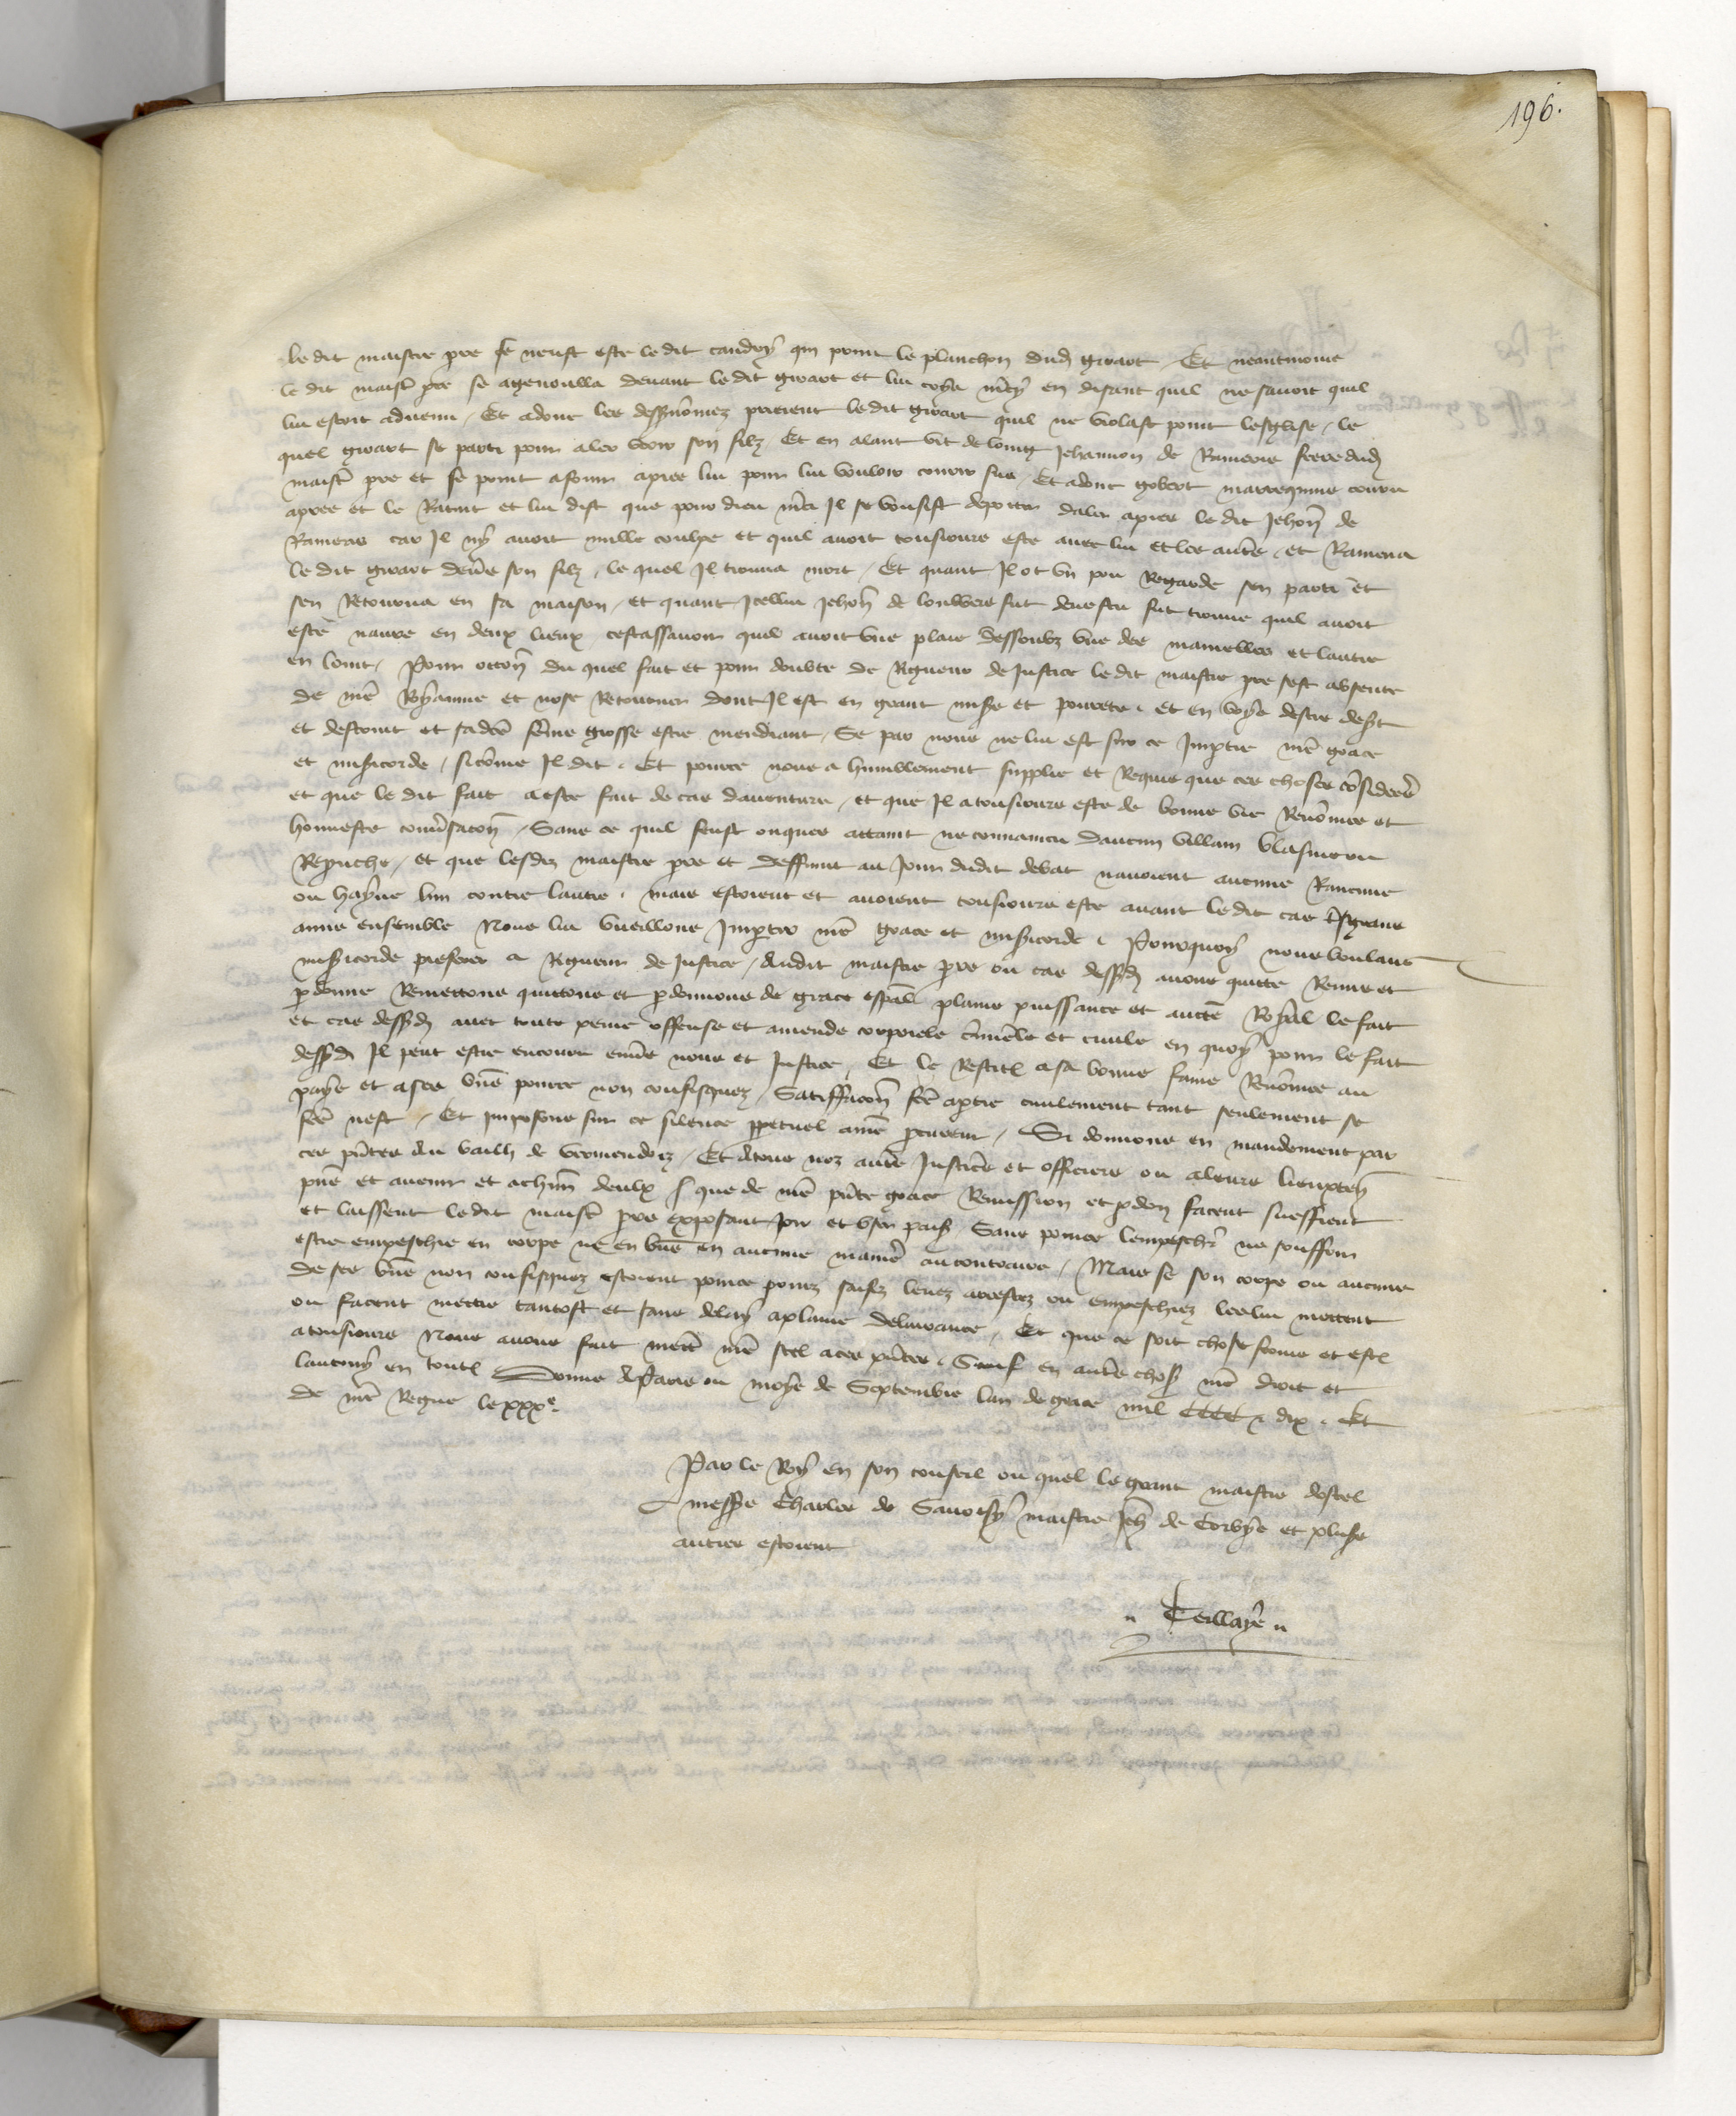 196.
le dit maistre pre se neust este ledit candry qui print le planchon dud girart / Et neantmoins
le dit maist pre se agenoulla devant le dit girart et lui crya mcy en disant quil ne savoit quil
lui estoit advenu / Et adonc les dessnommez prierent le dit girart quil ne violast point lesglise / le
quel girart se parti pour aler veoir son filz / Et en alant vit de loing Jehannon de Rameru frere dud
maist pre et se print a courir apres lui pour lui vouloir courir sus / Et adonc gobert courut
apres et le Ratint et lui dist que pour dieu mci Il se voulsist deporter daler apres le dit Jehan de
Rameru car Il ny avoit nulle coulpe et quil avoit tousiours este avec lui et les autres / et Ramena
le dit girart devers son filz / le quel Il trouva mort / Et quant Il ot un pou Regarde sen parti et
sen Retourna en sa maison / et quant Icellui Jehan de fut devestu fut trouve quil avoit
este navre en deux lieux cestassavoir quil avoit une plaie dessoubz une des mamelles et lautre
en / Pour occon du quel fait et pour doubte de Rigueur de Justice le dit maistre pre sest absente
de nre Royaume et nose Retourner dont Il est en grant misere et povrete / et en voye destre desert
et destruit et sadicte femme grosse estre mendiant / Se par nous ne lui est sur ce Impartie nre grace
et misericorde / sicomme Il dit / Et pource nous a humblement supplie et Requis que ces choses considerees
et que le dit fait a este fait de cas daventure / et que Il a tousiours este de bonne vie Renommee et
honneste conversacion / Sans ce quil feust onques attaint ne convaincu daucun villain blasme ou
Reprouche / et que lesdiz maistre pre et deffunt au Jour dudit debat navoient aucune Rancune
ou hayne lun contre lautre / mais estoient et avoient tousiours este avant le dit cas tresgrans
amis ensemble Nous lui vueillons Impartir nre grace et misericorde / Pourquoy nous voulans
misericorde preferer a Rigueur de Justice / Audit maistre pre ou cas dessusd avons quitte Remis et
pdonne Remettons quittons et pdonnons de grace especial plaine puissance et aucte Royal le fait
et cas dessusd avec toute peine offense et amende corporele criminele et civile en quoy pour le fait
dessusd Il peut estre encouru envers nous et Justice / Et le Restituons a sa bonne fame Renommee au
pays et a ses biens pource non confisquez / Satisfaccion fce a ptie civilement tant seulement se
fce nest / Et imposons sur ce silence ppetuel a nre pcureur / Si donnons en mandement par
ces pntes au bailli de Vermendois / Et a tous noz autres Justiciers et officiers ou a leurs lieuxten
pns et avenir et a chascun deulx / que de nre pnte grace Remission et pdon facent sueffrent
et laissent ledit maist pre exposant Joir et user paisiblement Sans pource lempeschier ne souffrir
estre empeschie en corps ne en biens en aucune maniere au contraire / Mais se son corps ou aucuns
de ses biens non confisquez estoient pource pris saisiz levez arrestez ou empeschiez les lui mettent
ou facent mettre tantost et sans delay a plaine delivrance / Et que ce soit chose ferme et estable
a tousiours Nous avons fait mettre nre scel a ces pntes / Sauf en autres choses nre droit et
lautruy en toutes Donne a Paris ou moys de Septembre lan de grace mil CCCC et dix / Et
de nre Regne le xxxe.
Par le Roy en son conseil ou quel le grant maistre dostel
messire Charles de Savoisy maistre Jeh de Corbye et plusrs
autres estoient
Teillaye